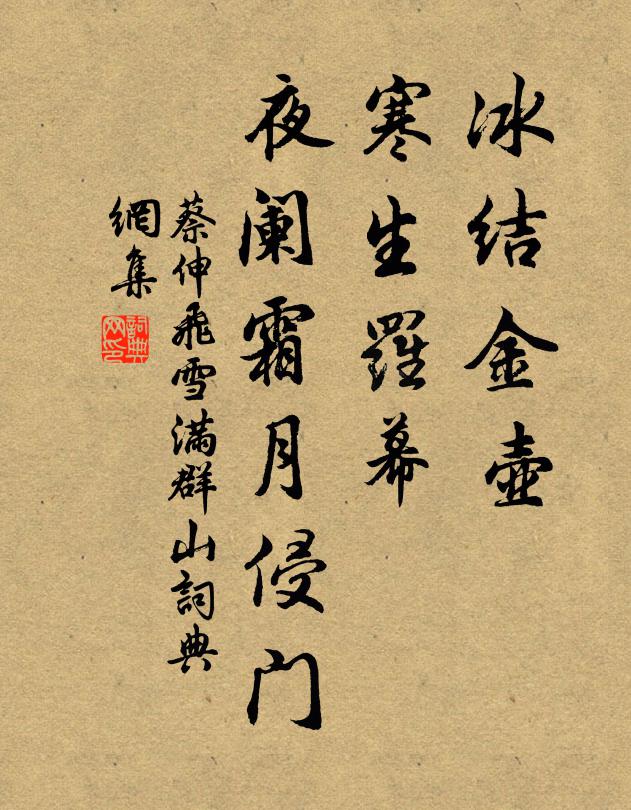 冰结金壶
寒生羅幕
夜阑霜月侵门
蔡伸飛雪滿群山詞典
網集
詞典
网印